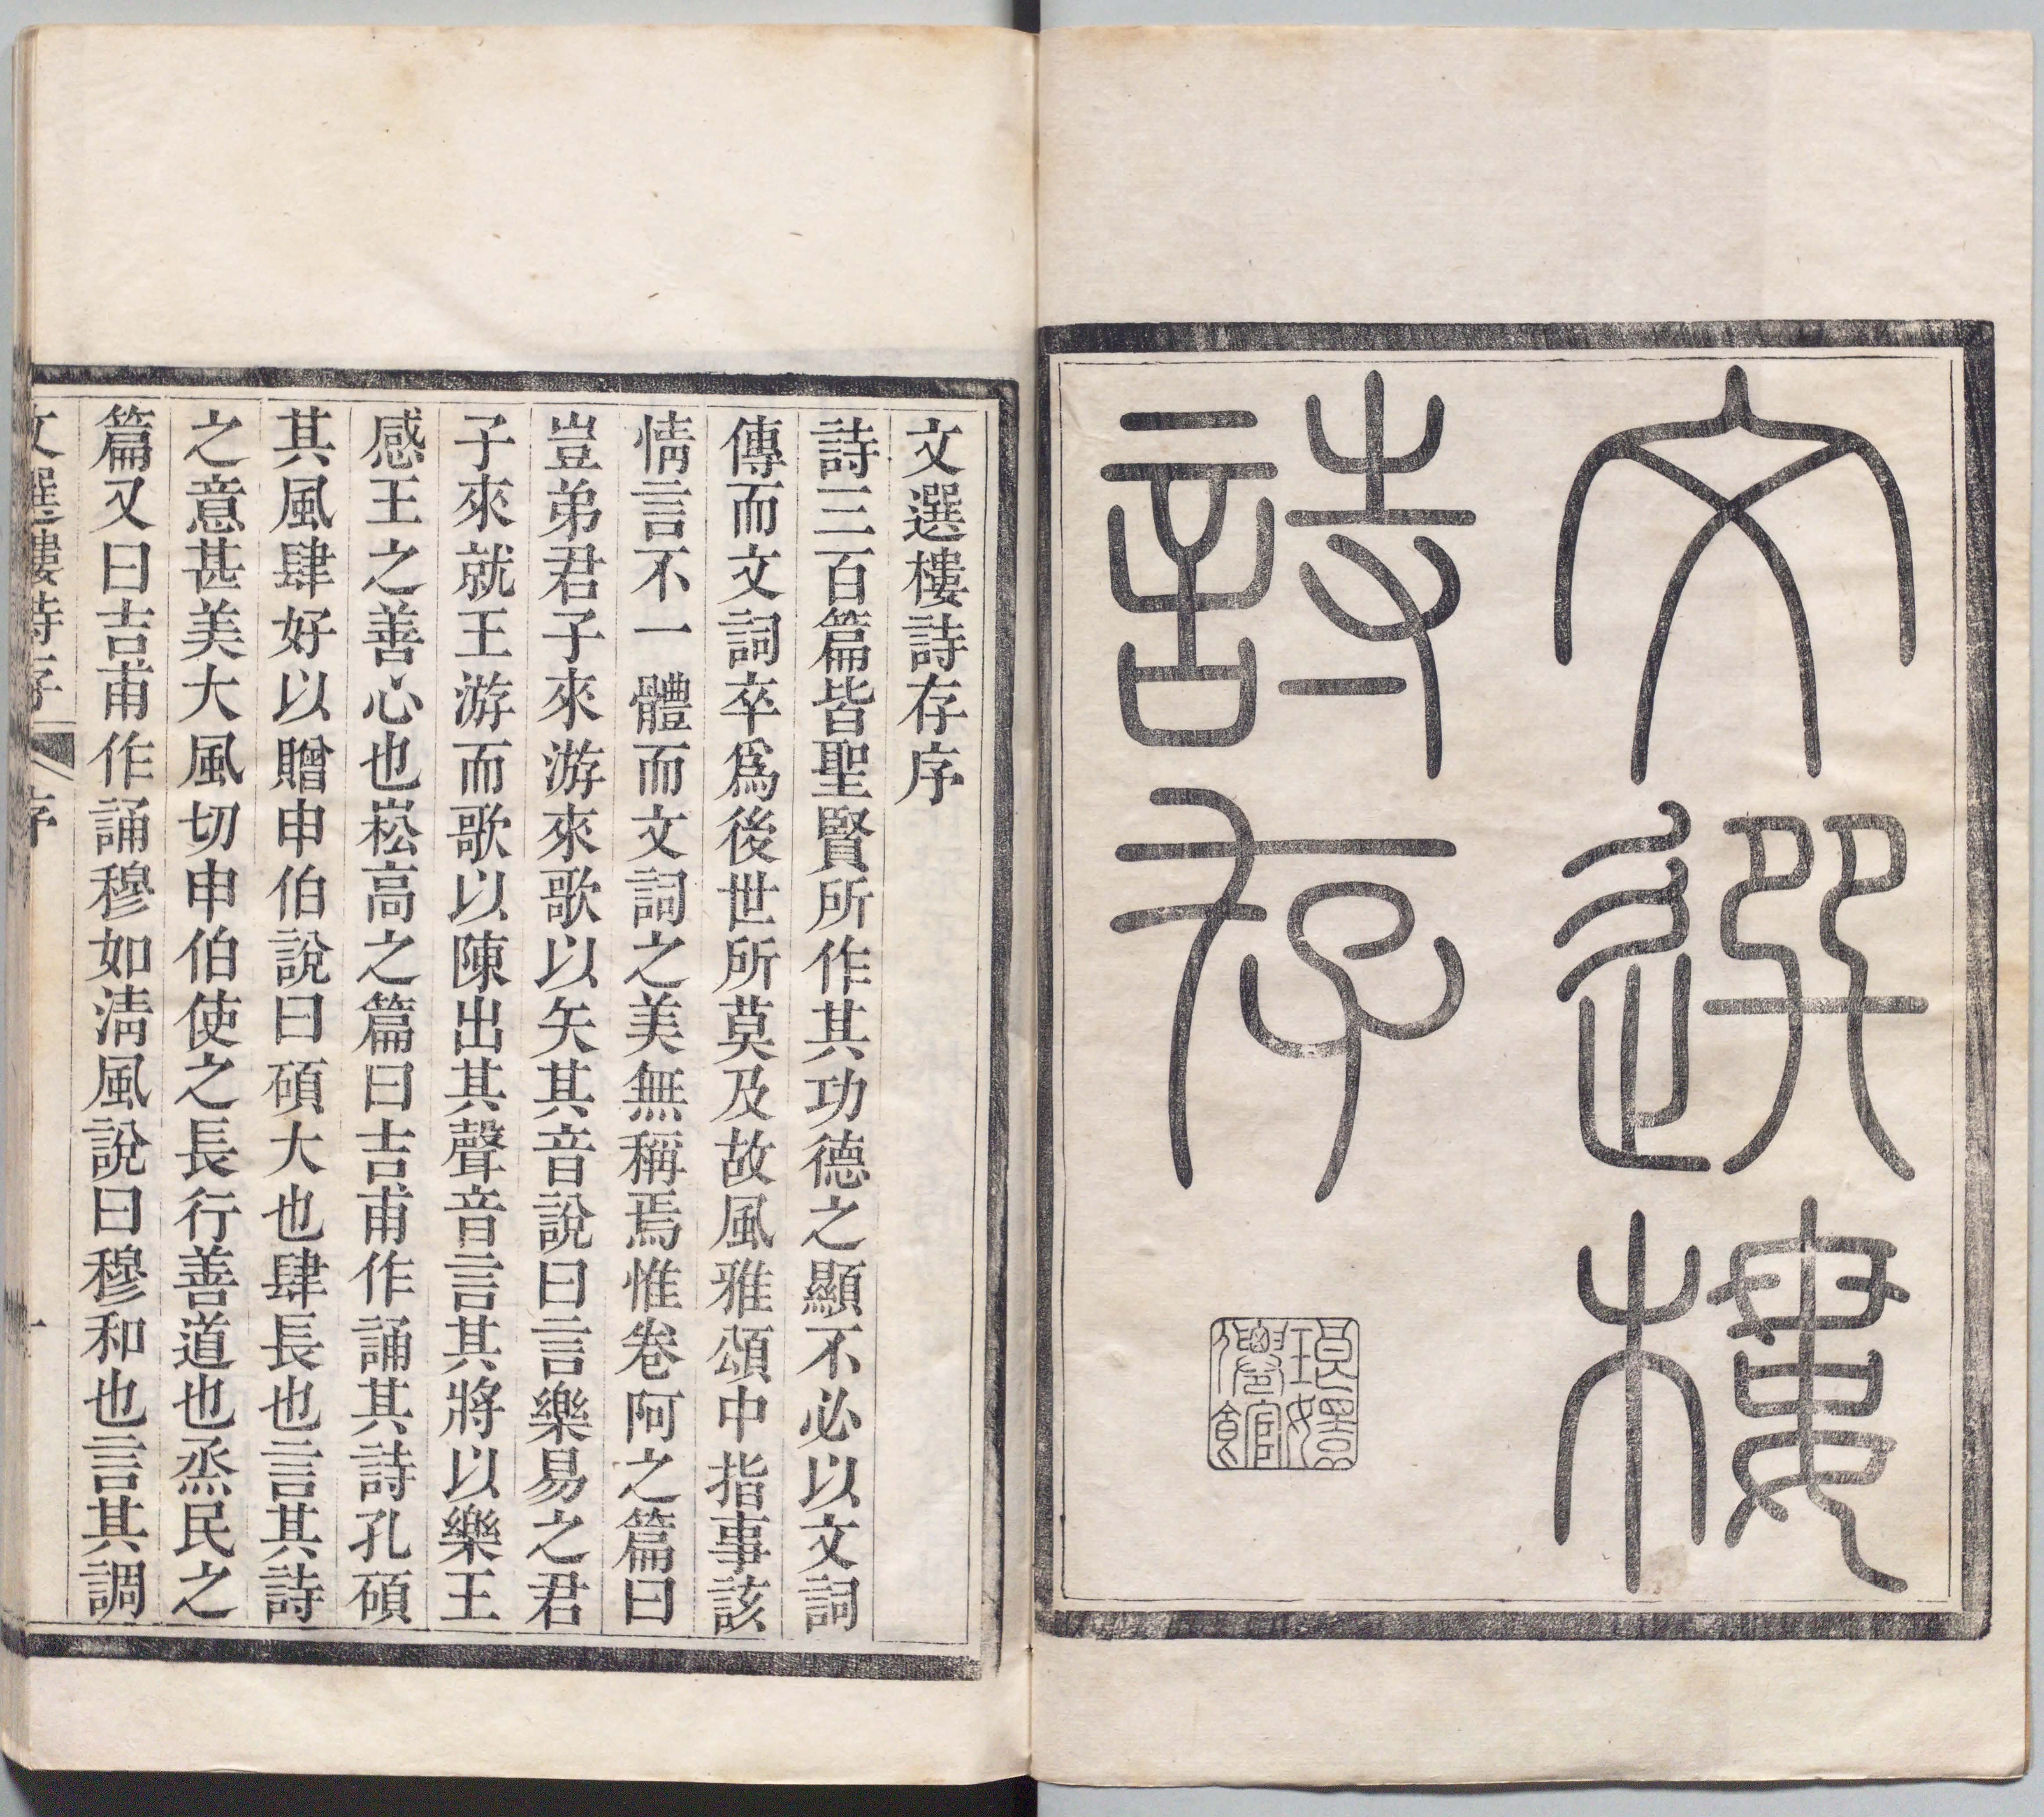 文選樓
詩存
琅嬛
僊館
文選樓詩存序
詩三百篇皆聖賢所作其功德之顯不必以文詞
傳而文詞卒爲後世所莫及故風雅頌中指事該
情言不一體而文詞之美無稱焉惟卷阿之篇曰
豈弟君子來游來歌以矢其音說曰言樂易之君
子來就王游而歌以陳出其聲音言其將以樂王
感王之善心也崧高之篇曰吉甫作誦其詩孔碩
其風肆好以贈申伯說曰碩大也肆長也言其詩
之意甚美大風切申伯使之長行善道也烝民之
篇又曰吉甫作誦穆如淸風說曰穆和也言其調
文選樓詩存 序 一